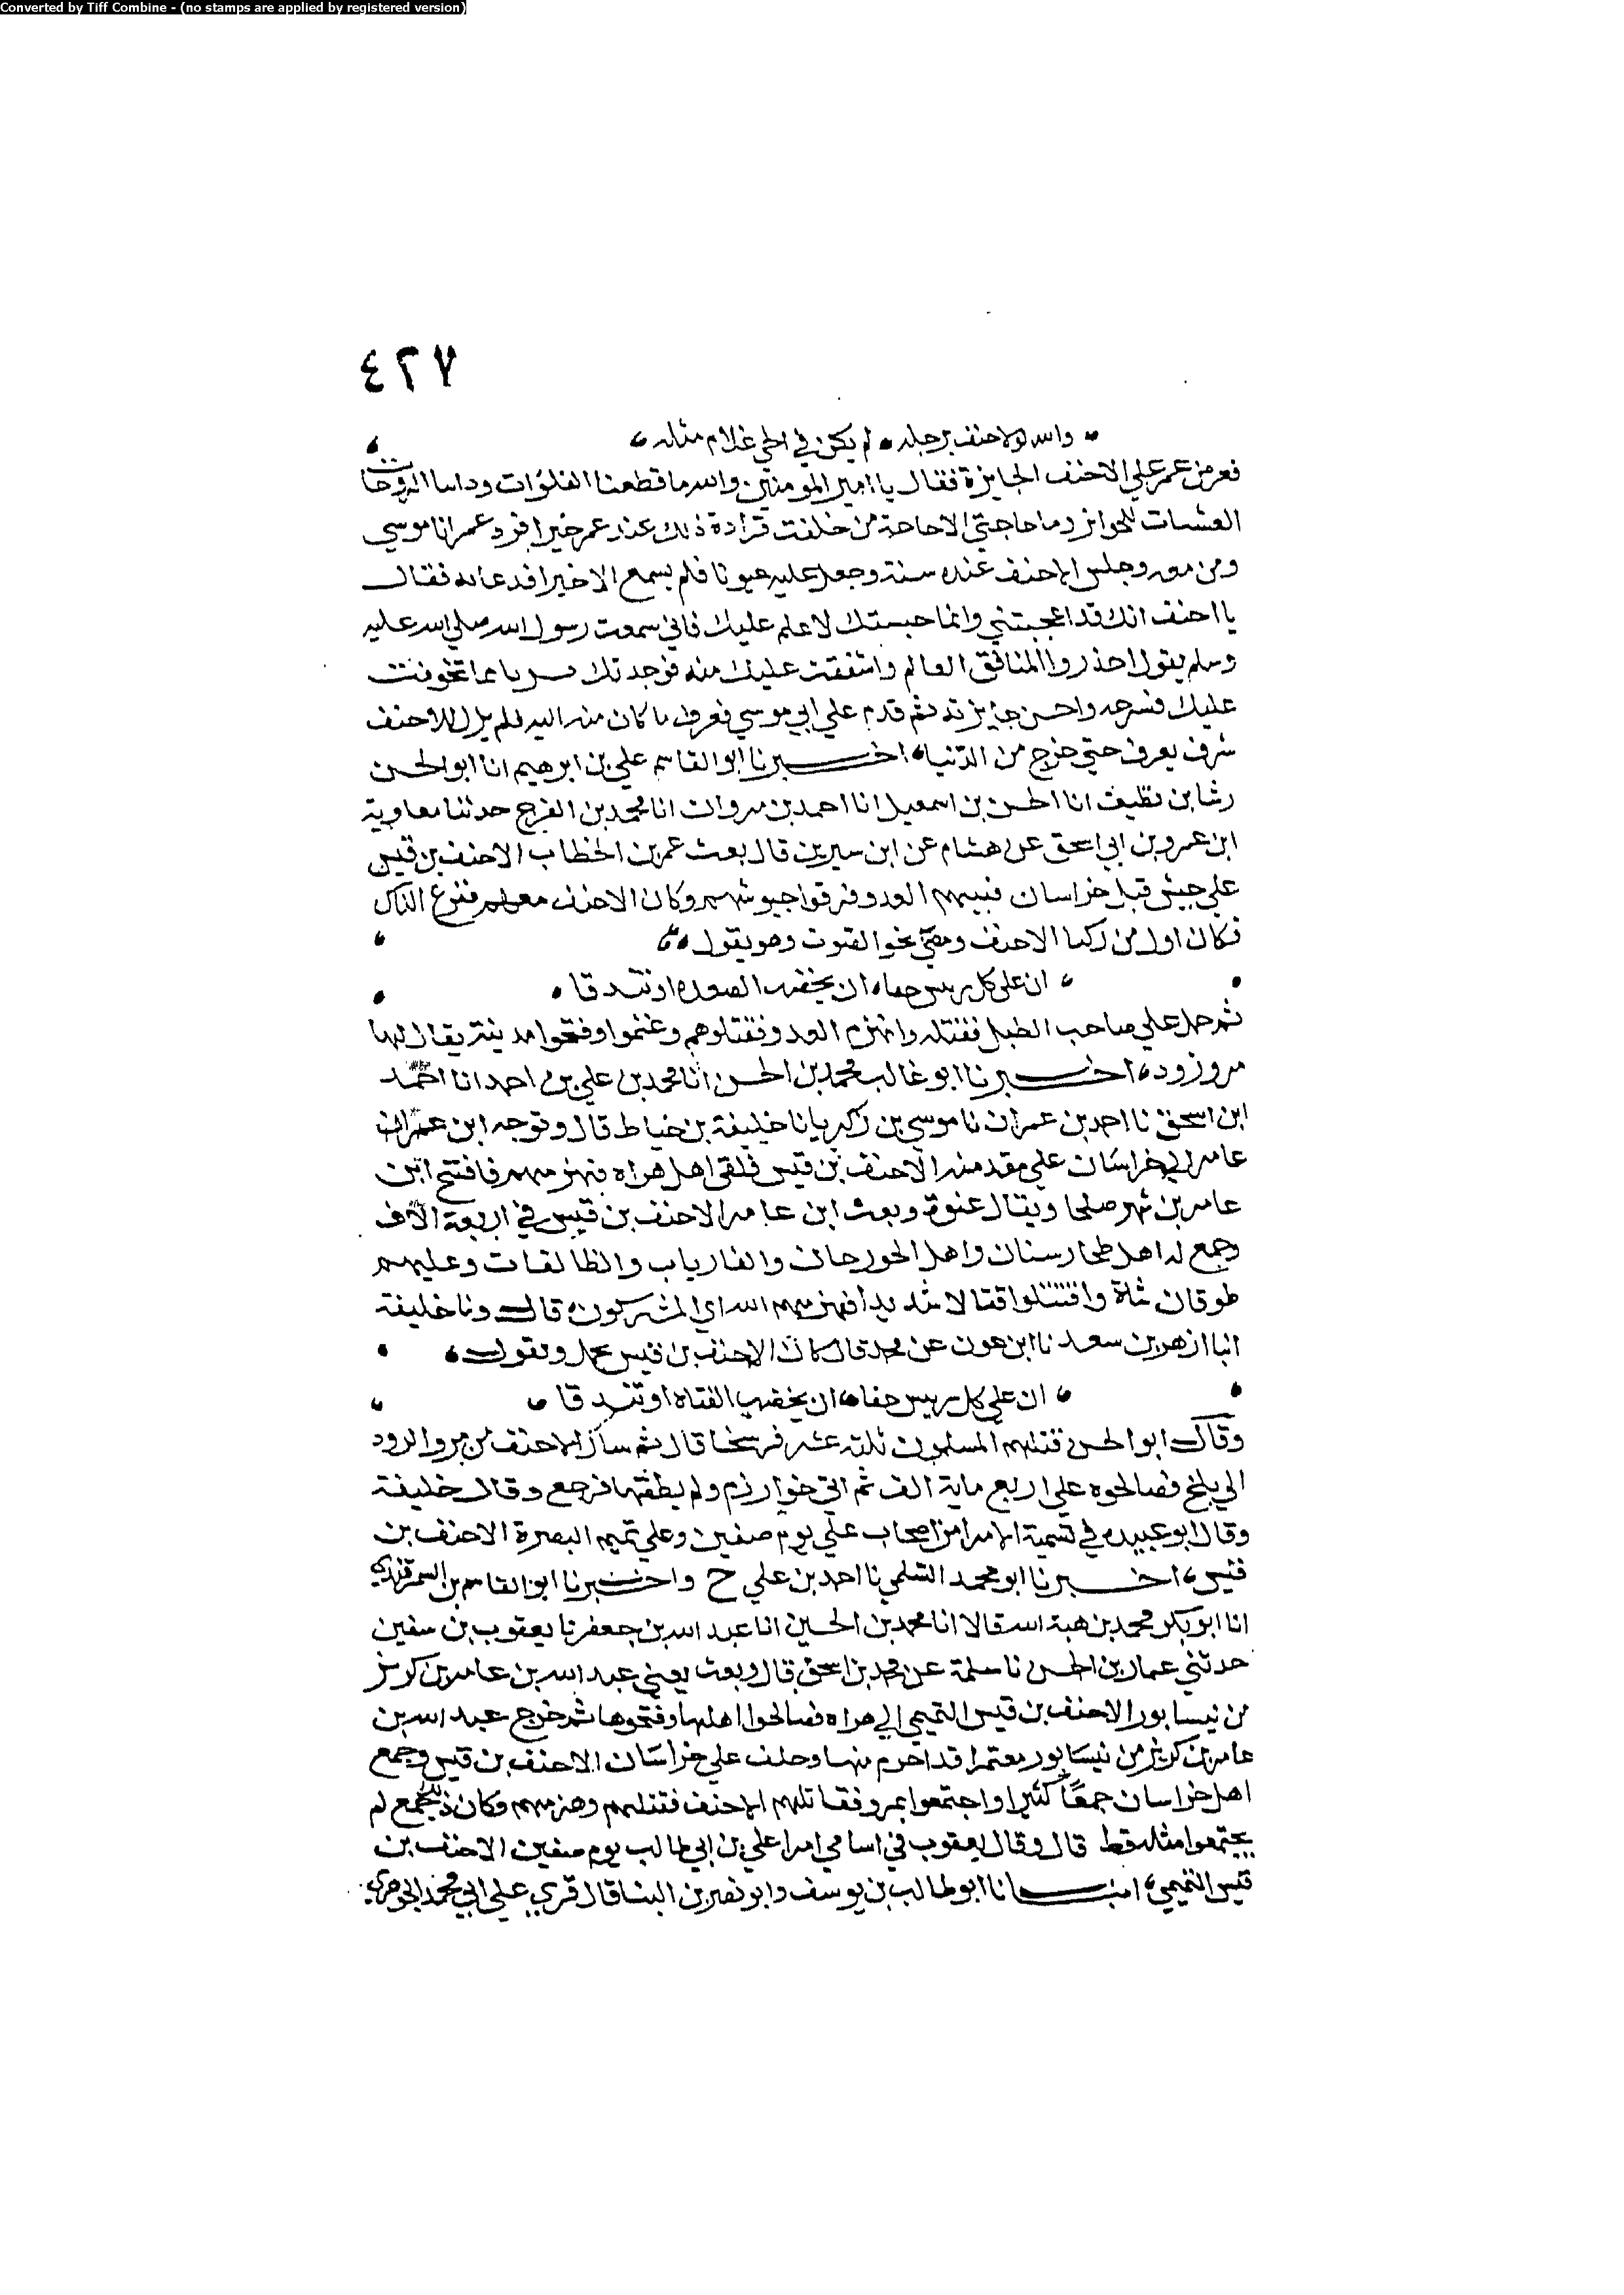 Converted by Tiff Combine - (no stamps are applied by registered version)
٤٢٧
والله لولا حنف برجله لم يكن في الحي غلام مثله
فعرض عمر علي الاحنف الجايزة فقال يا امير المومنين والله ما قطعنا الفلوات ودابنا الروحات
العشيات للجوايز وما حاجتي الا حاجة من خلفت فزاده ذلك عند عمر خيرا فرد عمر ابا موسي
ومن معه وجلس الاحنف عنده سنة وجعل عليه عيونا فلم يسمع الا خيرا فدعا به فقال
يا احنف انك قد اعجبتني وانما حبستك لاعلم عليك فاني سمعت رسول الله صلي الله عليه
وسلم يقول احذروا المنافق العالم واشفقت عليك منه فوجدتك بريا مما تخوفت
عليك فسرحه واحسن جايزته ثم قدم علي ابي موسي فعرف ما كان منه اليه فلم يزل للاحنف
شرف يعرف حتي خرج من الدنيا اخبرنا ابو القاسم علي بن ابرهيم انا ابو الحسن
رشا بن نظيف انا الحسن بن اسمعيل انا احمد بن مروان انا محمد بن الفرج حدثنا معاوية
ابن عمرو بن ابي اسحق عن هشام عن ابن سيرين قال بعث عمر بن الخطاب الاحنف بن قيس
علي جيش قبل خراسان فبيتهم العدو وفرقوا جيوشهم وكان الاحنف معهم ففزع الناس
فكان اول من ركب الاحنف ومضي نحو الصوت وهو يقول
ان علي كل رييس حقا ان يخضب الصعدة او تندقا
ثم حمل علي صاحب الطبل فقتله وانهزم العدو وفقتلوهم وغنموا وفتحوا مدينة يقال لها
مروزوذ اخبرنا ابو غالب محمد بن الحسن انا محمد بن علي بن احمد انا احمد
ابن اسحق نا احمد بن عمران نا موسي بن زكريا نا خليفة بن خياط قال وتوجه ابن
عامر الي خراسان علي مقدمته الاحنف بن قيس فلقي اهل هراه فهزمهم فافتتح ابن
عامر بن شهر صلحا ويقال عنوة وبعث ابن عامر الاحنف بن قيس في اربعة الاف
وجمع له اهل طخارستان واهل الجوزجان والفارياب والطالقان وعليهم
طوقان شاة واقتتلوا قتالا شديدا فهزمهم الله اي المشركون قال ونا خليفة
انبا ازهر بن سعد نا ابن عون عن محمد قال كان الاحنف بن قيس يحمل ويقول
ان علي كل رييس حقا ان يخضب القناة او تندقا
وقال ابو الحسن قتلهم المسلمون ثلثة عشر فرسخا قال ثم سار الاحنف من مرو الرود
الي بلخ فصالحوه علي اربع ماية الف ثم اتي خوارزم ولم يطقها فرجع وقال خليفة
وقال ابو عبيده في تسمية الامرا من اصحاب علي يوم صفين وعلي تميم البصرة الاحنف بن
قيس اخبرنا ابو محمد السلمي نا احمد بن علي ح واخبرنا ابو القاسم بن السمرقندي
انا ابو بكر محمد بن هبة الله قالا انا محمد بن الحسين انا عبد الله بن جعفر نا يعقوب بن سفين
حدثني عمار بن الحسن نا سلمة عن محمد بن اسحق قال وبعث يعني عبد الله بن عامر بن كريز
من نيسابور الاحنف بن قيس التميمي الي هراه فصالحوا اهلها وفتحوها ثم خرج عبد الله بن
عامر بن كريز من نيسابور معتمرا قد احرم منها وخلف علي خراسان الاحنف بن قيس وجمع
اهل خراسان جمعا كثيرا واجتمعوا بمرو فقاتلهم الاحنف فقتلهم وهزمهم وكان ذلك الجمع لم
يجتمعوا مثله قط قال وقال يعقوب في اسامي امرا علي بن ابي طالب يوم صفين الاحنف بن
قيس التميمي انبانا ابو طالب بن يوسف وابو نصر بن البنا قال قري علي ابي محمد الجوهري